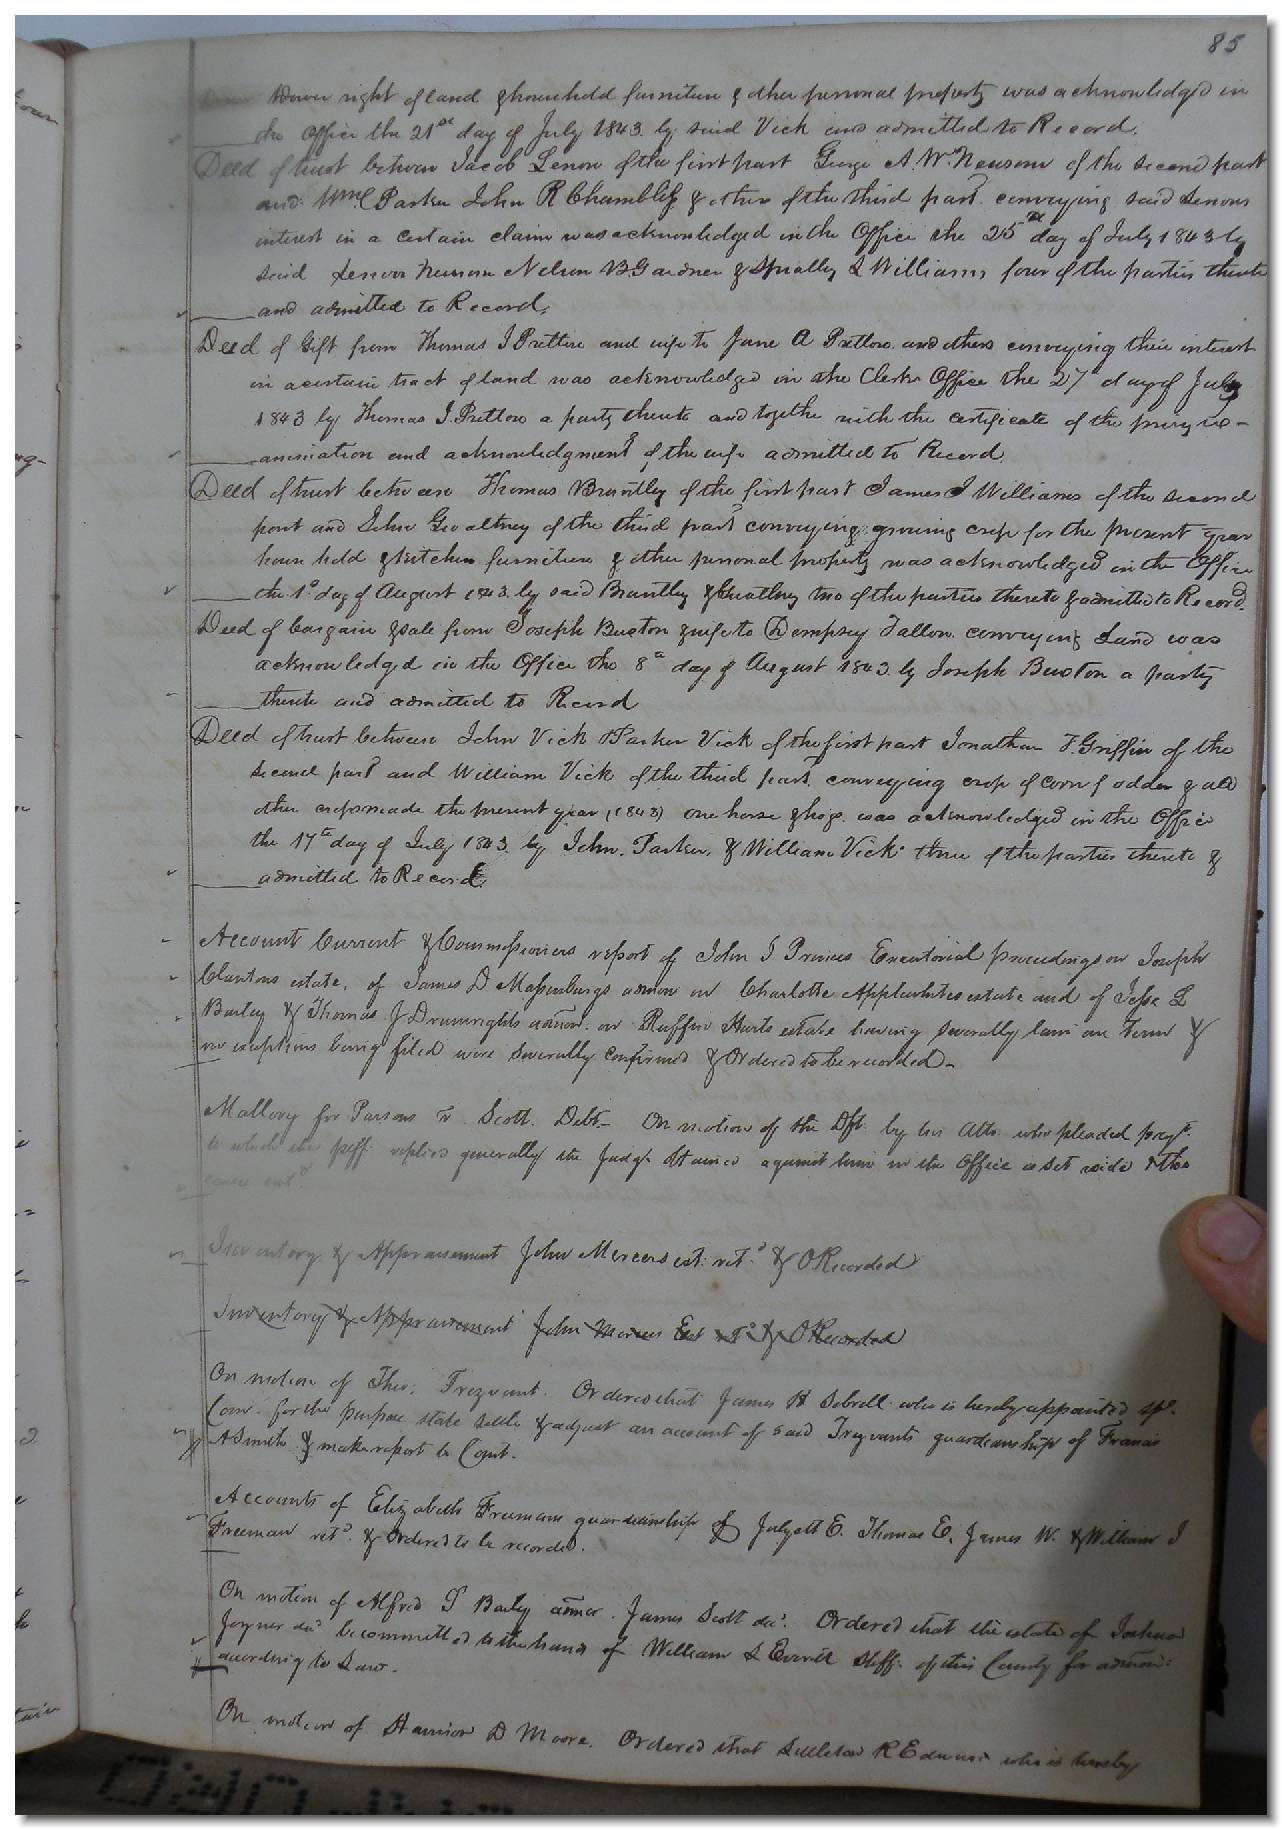 85
Dower right of land & household furniture & other personal property was acknowledged in
the Office the 21st day of July 1843 by said Vick and admitted to Record.
Deed of trust between Jacob Lenow of the first part George A. W. Newsom of the second part
and Parker John R Chambliss & others of the third part conveying said Lenows
interest in a certain claim was acknowledged in the Office the 25th day of July 1843 by
said Lenow Newsom Nelson B Gardner & L Williams, four of the parties thereto
and admitted to Record.
Deed of Gift from Thomas J Pretlow and wife to Jane A Pretlow and others conveying their interest
in a certain tract of land was acknowledged in the Clerks Office the 27 day of July
1843 by Thomas J. Pretlow a party thereto and together with the certificate of the privy ex-
amination and acknowledgment of the wife admitted to Record.
Deed of trust between Thomas Brantley of the first part James J Williams of the second
part and John Gwaltney of the third part conveying growing crop for the present year
house hold & kitchen furniture & other personal property was acknowledged in the Office
the 1st day of August 1843 by said Brantley & Gwaltney two of the parties thereto & admitted to Record.
Deed of bargain & sale from Joseph Buxton & wife to Dempsey Fallow conveying Land was
acknowledged in the Office the 8th day of August 1843 by Joseph Buxton a party
thereto and admitted to Record
Deed of trust between John Vick Parker Vick of the first part Jonathan T. Griffin of the
second part and William Vick of the third part conveying crop of corn fodder & all
other crops made the present year, (1843) one horse & hogs was acknowledged in the Office
the 17th day of July 1843 by John, Parker, & William Vick three of the parties thereto &
admitted to Record.
Account Current & Commissioners report of John J Princes Executorial proceedings on Joseph
Clantons estate, of James D Massenburgs admon on Charlotte Applewhites estate and of Jesse L
Barley & Thomas J Drewrights admon. on Ruffin Harts estate having severally lain on Term &
no exceptions being filed were severally confirmed & Ordered to be recorded-
Mallory for Parsons v Scott. Debt- On motion of the Dft by his Atto. who pleaded paymt.
to which the plff. replied generally the Judgt obtained against him in the Office is set aside & the
cause contd
Inventory & Appraisement John Mercers est. retd & ORecorded
Inventory & Appraisement John Mercers Est retd & ORecorded
On motion of Theo. Trezvant. Ordered that James H Sebrell who is hereby appointed spl.
Comr. for the purpose state settle & adjust an account of said Trezvants guardianship of Francis
A Smith & make report to Court.
Accounts of Elizabeth Freemans guardianship of Julyett E. Thomas E. James W. & William J
Freeman retd. & Ordered to be recorded.
On motion of Alfred T Baily admor. James Scott decd. Ordered that the estate of Joshua
Joyner decd be committed to the hands of William L Everitt Shff. of this County for admon:
according to Law.
On motion of Harrison D Moore. Ordered that Littleton R Edwards who is hereby